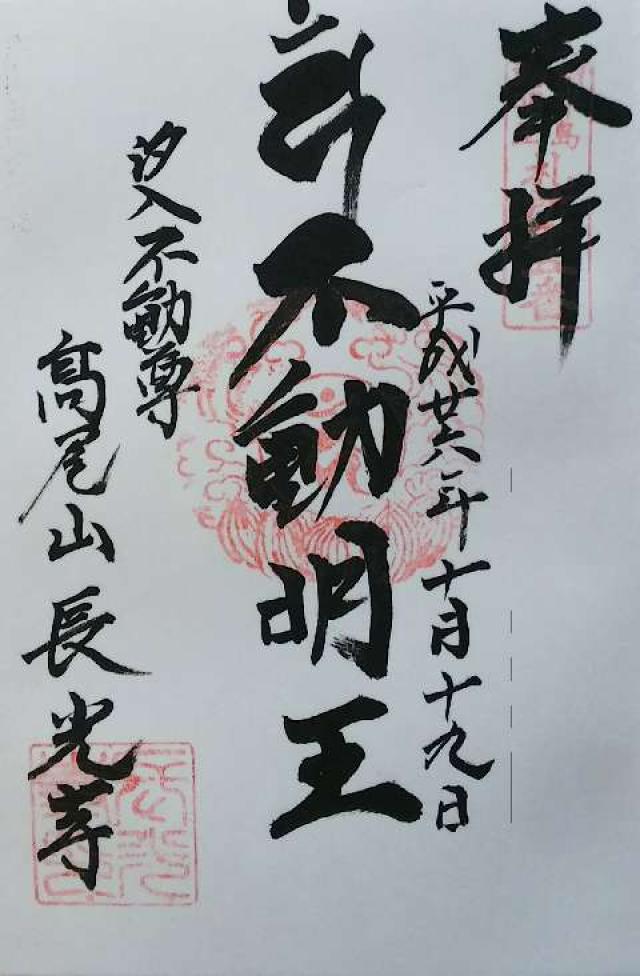 奉拝
平成廿六年十月十九日
不動明王
汐入不動尊
高尾山長光寺